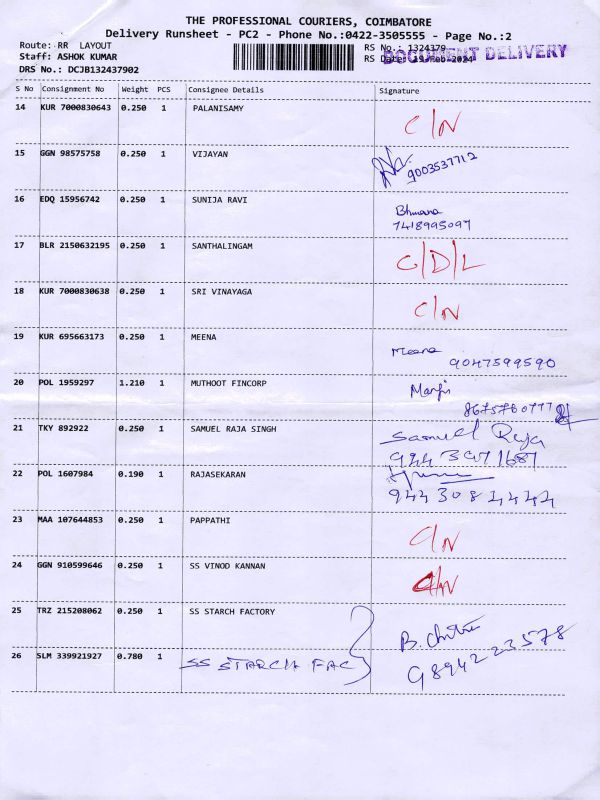 THE PROFESSIONAL COURIERS, COIMBATORE
Delivery Runsheet - PC2 - Phone No.:0422-3505555 - Page No.:2
Route: RR LAYOUT
RS No.: 1324379
DOCUMENT DELIVERY
Staff: ASHOK KUMAR
RS Date: 19-Feb-2024
DRS No.: DCJB132437902
S No Consignment No Weight PCS Consignee Details Signature
14 KUR 7000830643 0.250 1 PALANISAMY C/N
15 GGN 98575758 0.250 1 VIJAYAN
9003537712
16 EDQ 15956742 0.250 1 SUNIJA RAVI
7418995097
17 BLR 2150632195 0.250 1 SANTHALINGAM C/D/L
18 KUR 7000830638 0.250 1 SRI VINAYAGA C/N
19 KUR 695663173 0.250 1 MEENA Meena
9047599590
20 POL 1959297 1.210 1 MUTHOOT FINCORP
21 TKY 892922 0.250 1 SAMUEL RAJA SINGH Samuel Raja
22 POL 1607984 0.190 1 RAJASEKARAN
944 308 1444
23 MAA 107644853 0.250 1 PAPPATHI C/N
24 GGN 910599646 0.250 1 SS VINOD KANNAN C/N
25 TRZ 215208062 0.250 1 SS STARCH FACTORY B. Chitra
26 SLM 339921927 0.780 1 SS STARCH FAC
9894223578